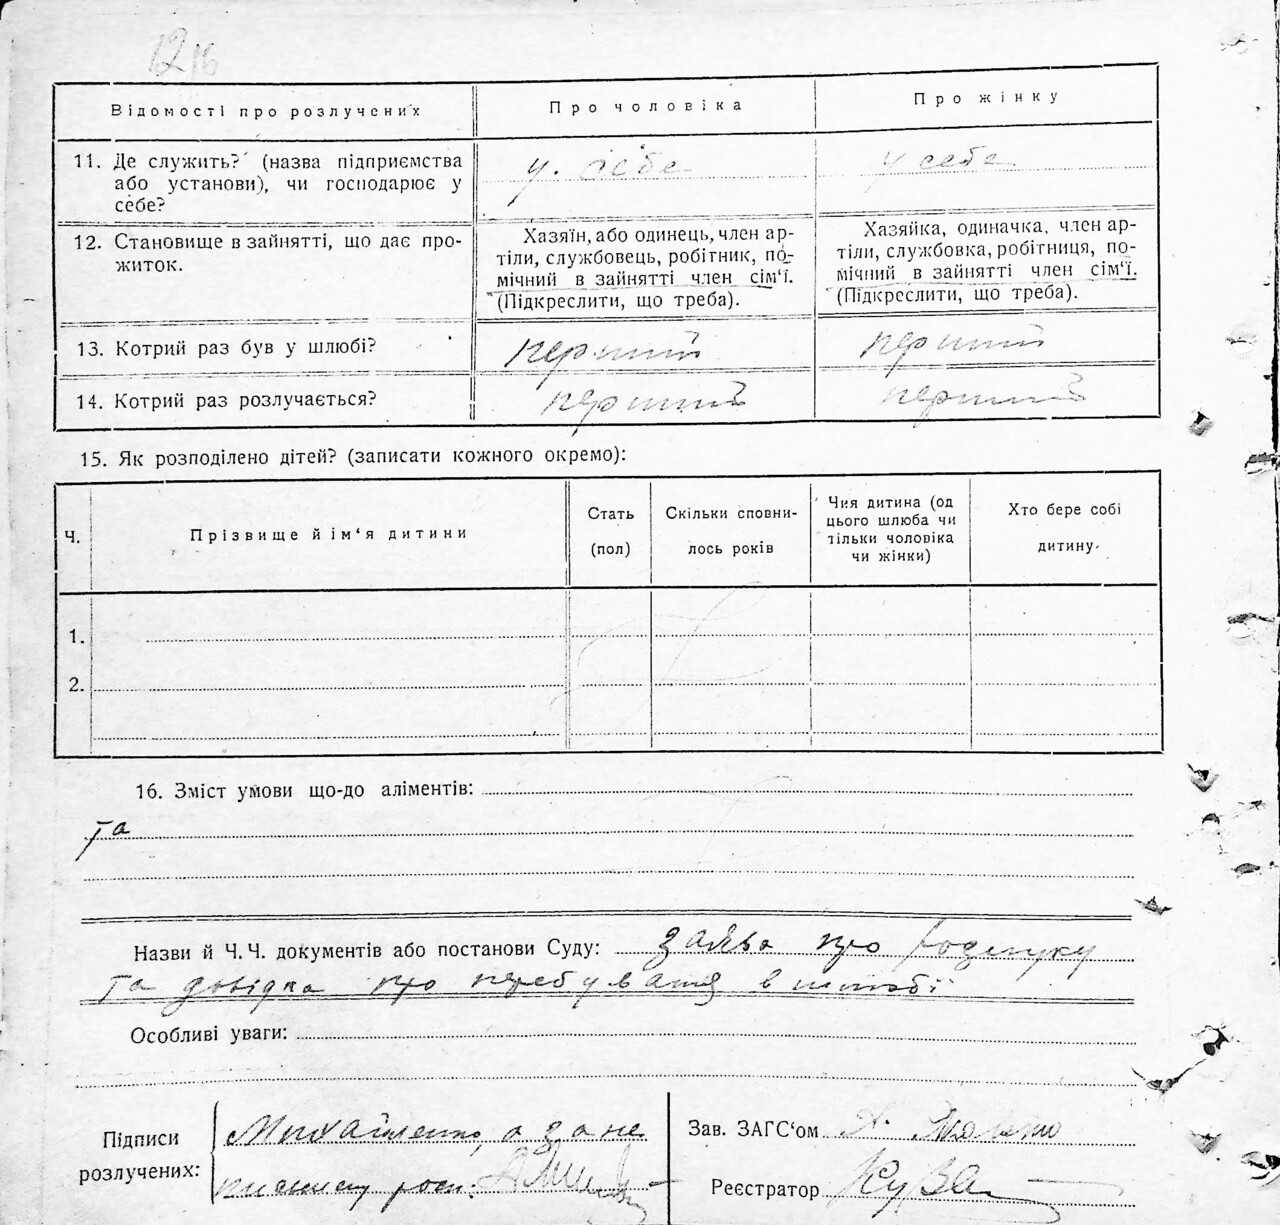 12
Відомості про розлучених
Про чоловіка
Про жінку
11. Де служить? (назва підприємства
або установи), чи господарює у
себе?
у себе
у себе
12. Становище в зайнятті, що дає про-
житок.
Хазяїн, або одинець, член ар-
тіли, службовець, робітник, по-
мічний в зайнятті член сім'ї.
(Підкреслити, що треба).
Хазяйка, одиначка, член ар-
тіли, службовка, робітниця, по-
мічний в зайнятті член сім'ї.
(Підкреслити, що треба).
13. Котрий раз був у шлюбі?
перший
перший
14. Котрий раз розлучається?
перший
перший
15. Як розподілено дітей? (записати кожного окремо):
Ч.
Прізвище й ім'я дитини
Стать
(пол)
Скільки сповни-
лось років
Чия дитина (од
цього шлюба чи
тільки чоловіка
чи жінки)
Хто бере собі
дитину.
1.
2.
16. Зміст умови що-до аліментів:
та
Назви й Ч.Ч. документів або постанови Суду: заява про
та довідка про перебування в шлюбі
Особливі уваги:
Підписи
розлучених:
Михайленко, а за не
писмену росп.
Зав. ЗАГС'ом
Реєстратор